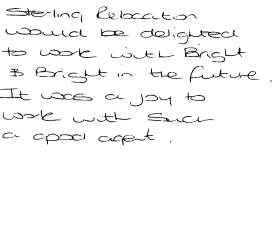 Sterling Relocation
would be delighted
to work with Bright
& Bright in the future.
It was a joy to
work with such
a good agent.